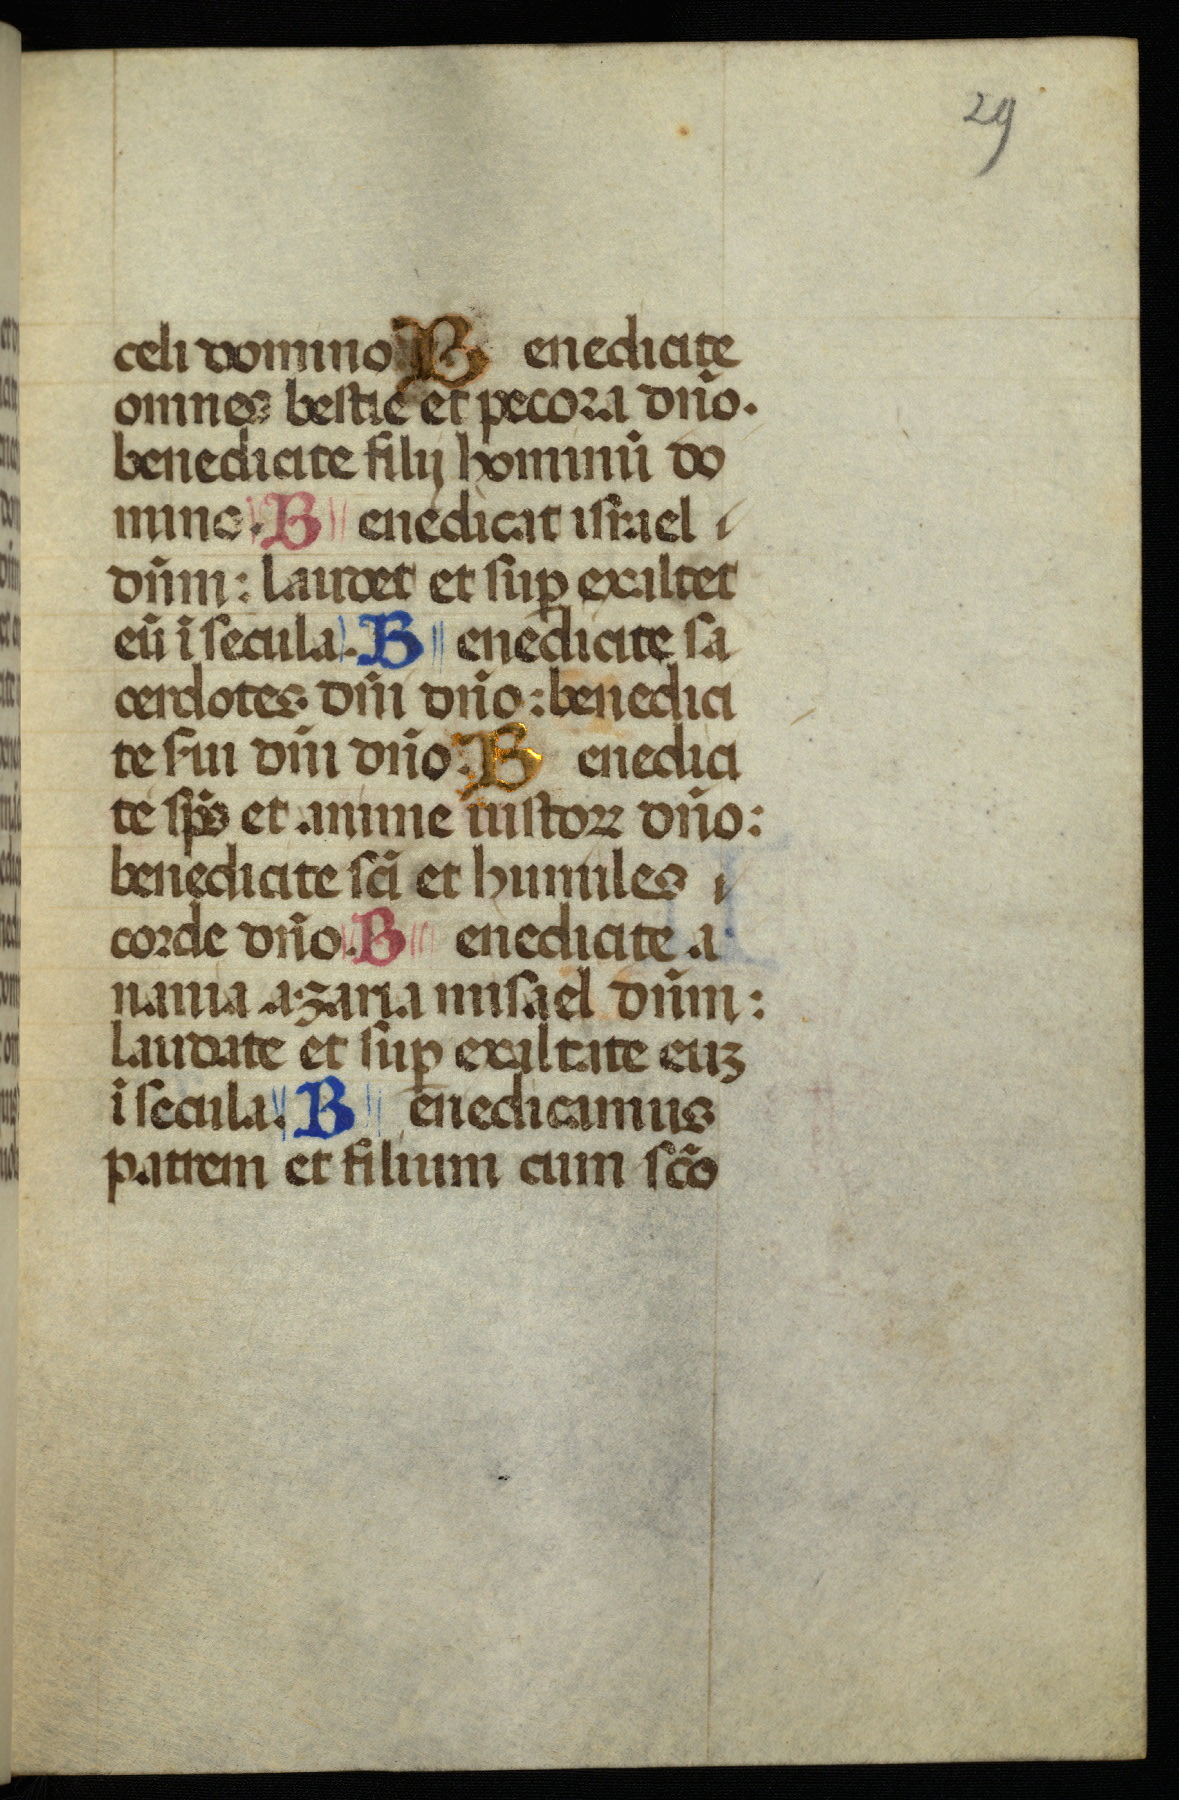 29
celi domino Benedicite
omnes bestie et pecora dn̄o.
benedicite filij hominū do
mino. Benedicat israel
dn̄m: laudet et suꝑ exaltet
eū ī secula. Benedicite sa
cerdotes dn̄i dn̄o: benedici
te sᵉrui dn̄i dn̄o. Benedici
te sp̄s et anime iustoꝝ dn̄o:
benedicite sc̄i et humiles
corde dn̄o. Benedicite a
nania azaria misael dn̄m:
laudate et suꝑ exaltate euꝫ
ī secula. Benedicamus
patrem et filium cum sc̄o